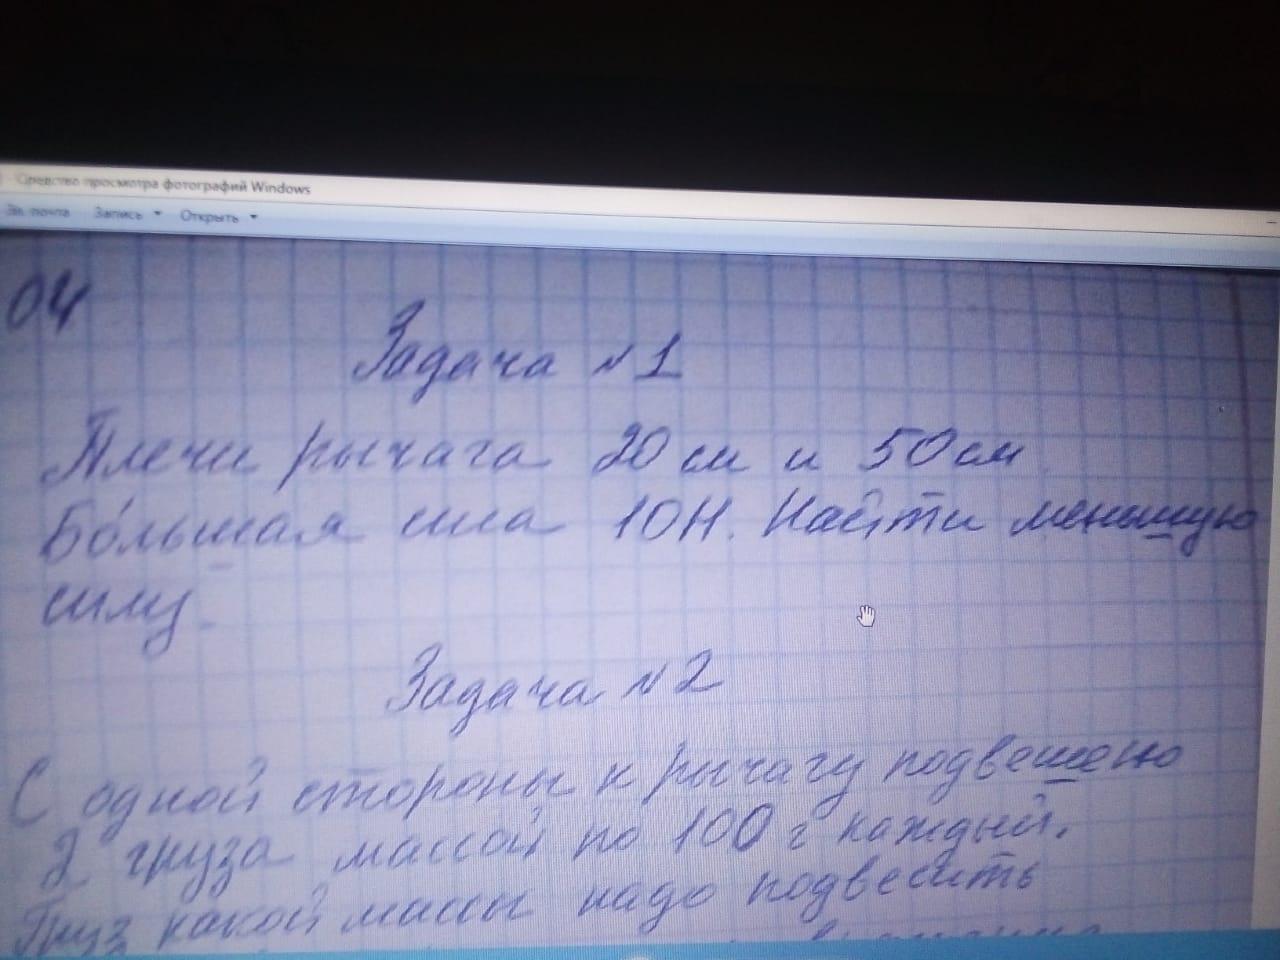 Средство просмотра фотографий Windows
Эл. почта Запись Открыть
04
Задача №1
Плечи рычага 20 см и 50 см
Бо́льшая сила 10Н. Найти меньшую
силу.
Задача №2
С одной стороны к рычагу подвешено
2 груза массой по 100 г каждый.
Груз какой массы надо подвесить